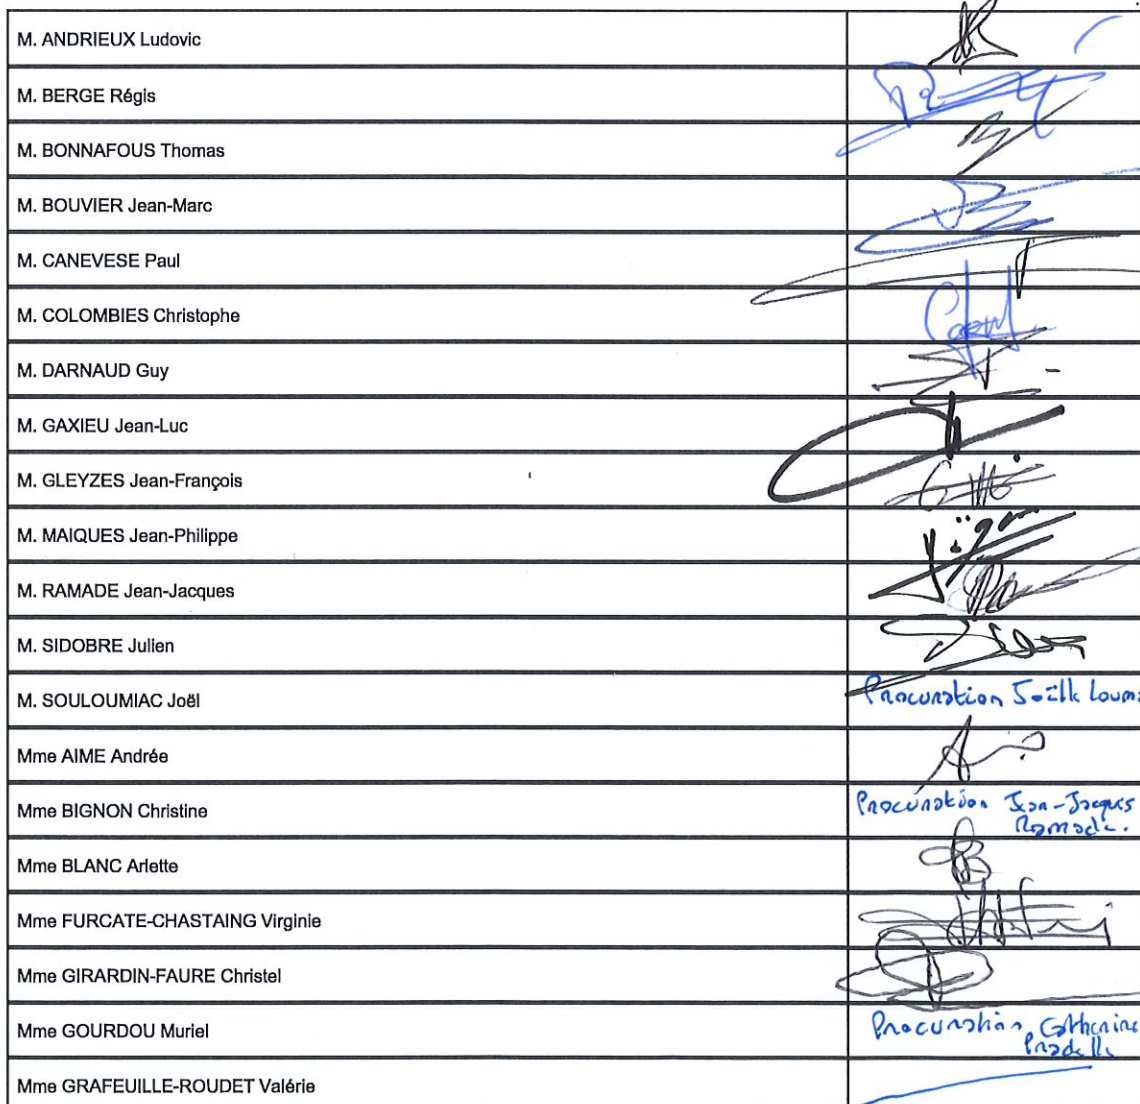 M. ANDRIEUX Ludovic
M. BERGE Régis
M. BONNAFOUS Thomas
M. BOUVIER Jean-Marc
M. CANEVESE Paul
M. COLOMBIES Christophe
M. DARNAUD Guy
M. GAXIEU Jean-Luc
M. GLEYZES Jean-François
M. MAIQUES Jean-Philippe
M. RAMADE Jean-Jacques
M. SIDOBRE Julien
M. SOULOUMIAC Joël
Procuration Joëlle
Mme AIME Andrée
Mme BIGNON Christine
Procuration Jean-Jacques
Ramade.
Mme BLANC Arlette
Mme FURCATE-CHASTAING Virginie
Mme GIRARDIN-FAURE Christel
Mme GOURDOU Muriel
Procuration Catherine
Mme GRAFEUILLE-ROUDET Valérie